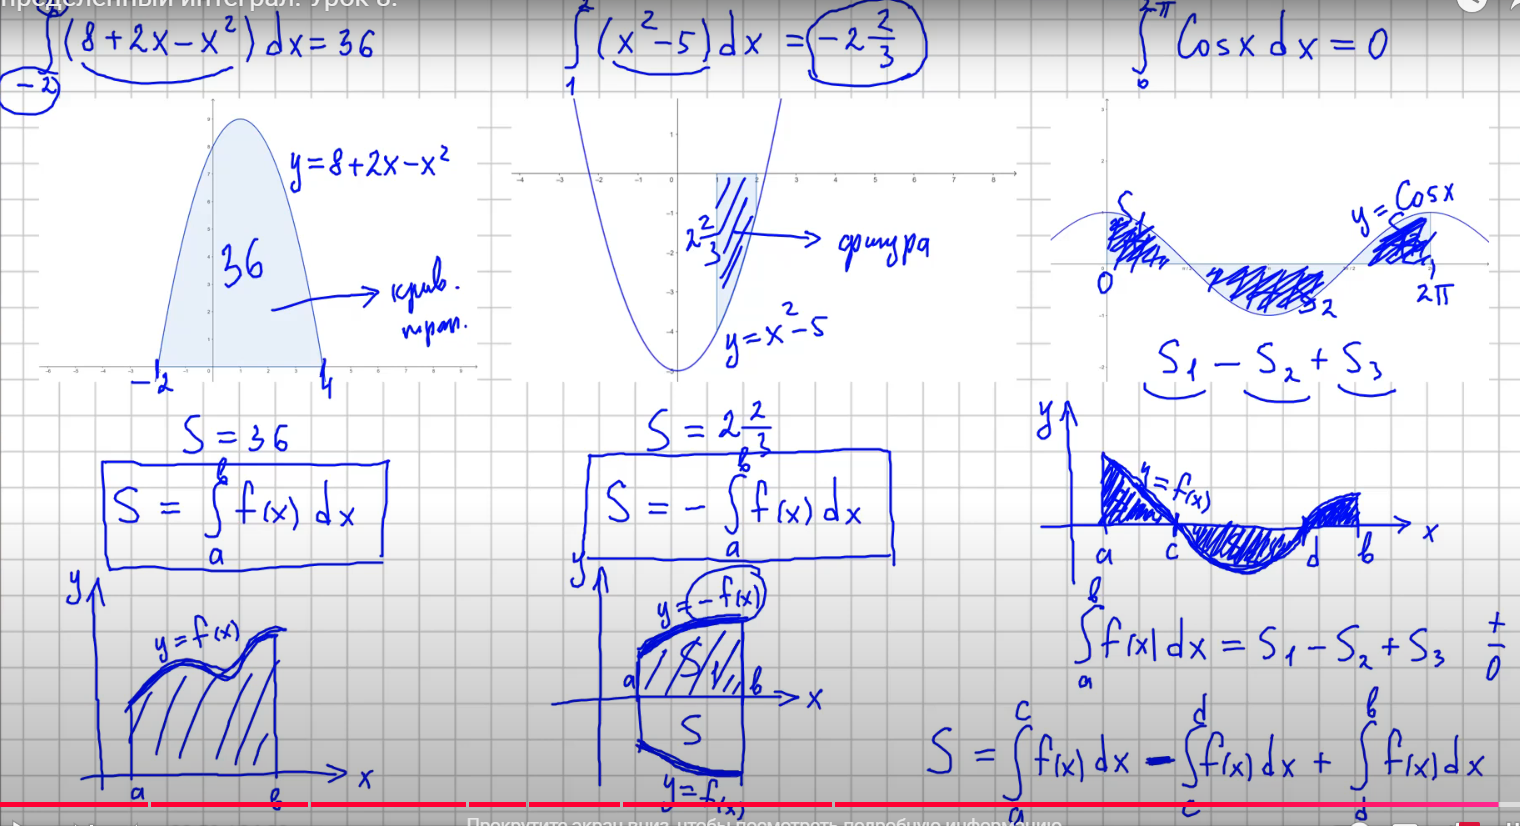 пределенный интеграл. Урок 8.
∫₋₂ (8+2x−x²) dx = 36
∫₁² (x²−5) dx = −2 2/3
∫₀^2π Cosx dx = 0
y=8+2x−x²
36
крив.
трап.
−2
4
2 2/3
фигура
y=x²−5
y=Cosx
S₁
S₂
0
2π
S₁ − S₂ + S₃
S = 36
S = ∫ₐᵇ f(x) dx
y
y=f(x)
a
b
x
S = 2 2/3
S = − ∫ₐᵇ f(x) dx
y
y=−f(x)
S
a
b
x
S
y=f(x)
y
y=f(x)
a
c
d
b
x
∫ₐᵇ f(x) dx = S₁ − S₂ + S₃
+
−
0
S = ∫ₐᶜ f(x) dx − ∫꜀ᵈ f(x) dx + ∫_d^b f(x) dx
Прокрутите экран вниз, чтобы посмотреть подробную информацию